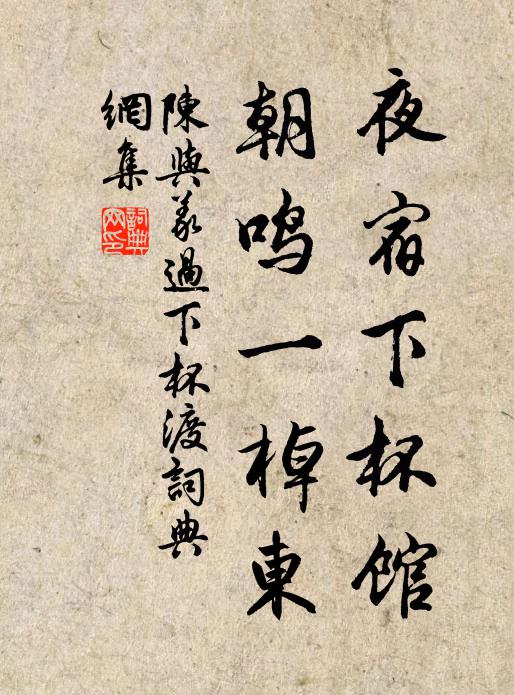 夜宿下杯館
朝鳴一棹東
陳與義過下杯渡詞典
網集
詞典
网印